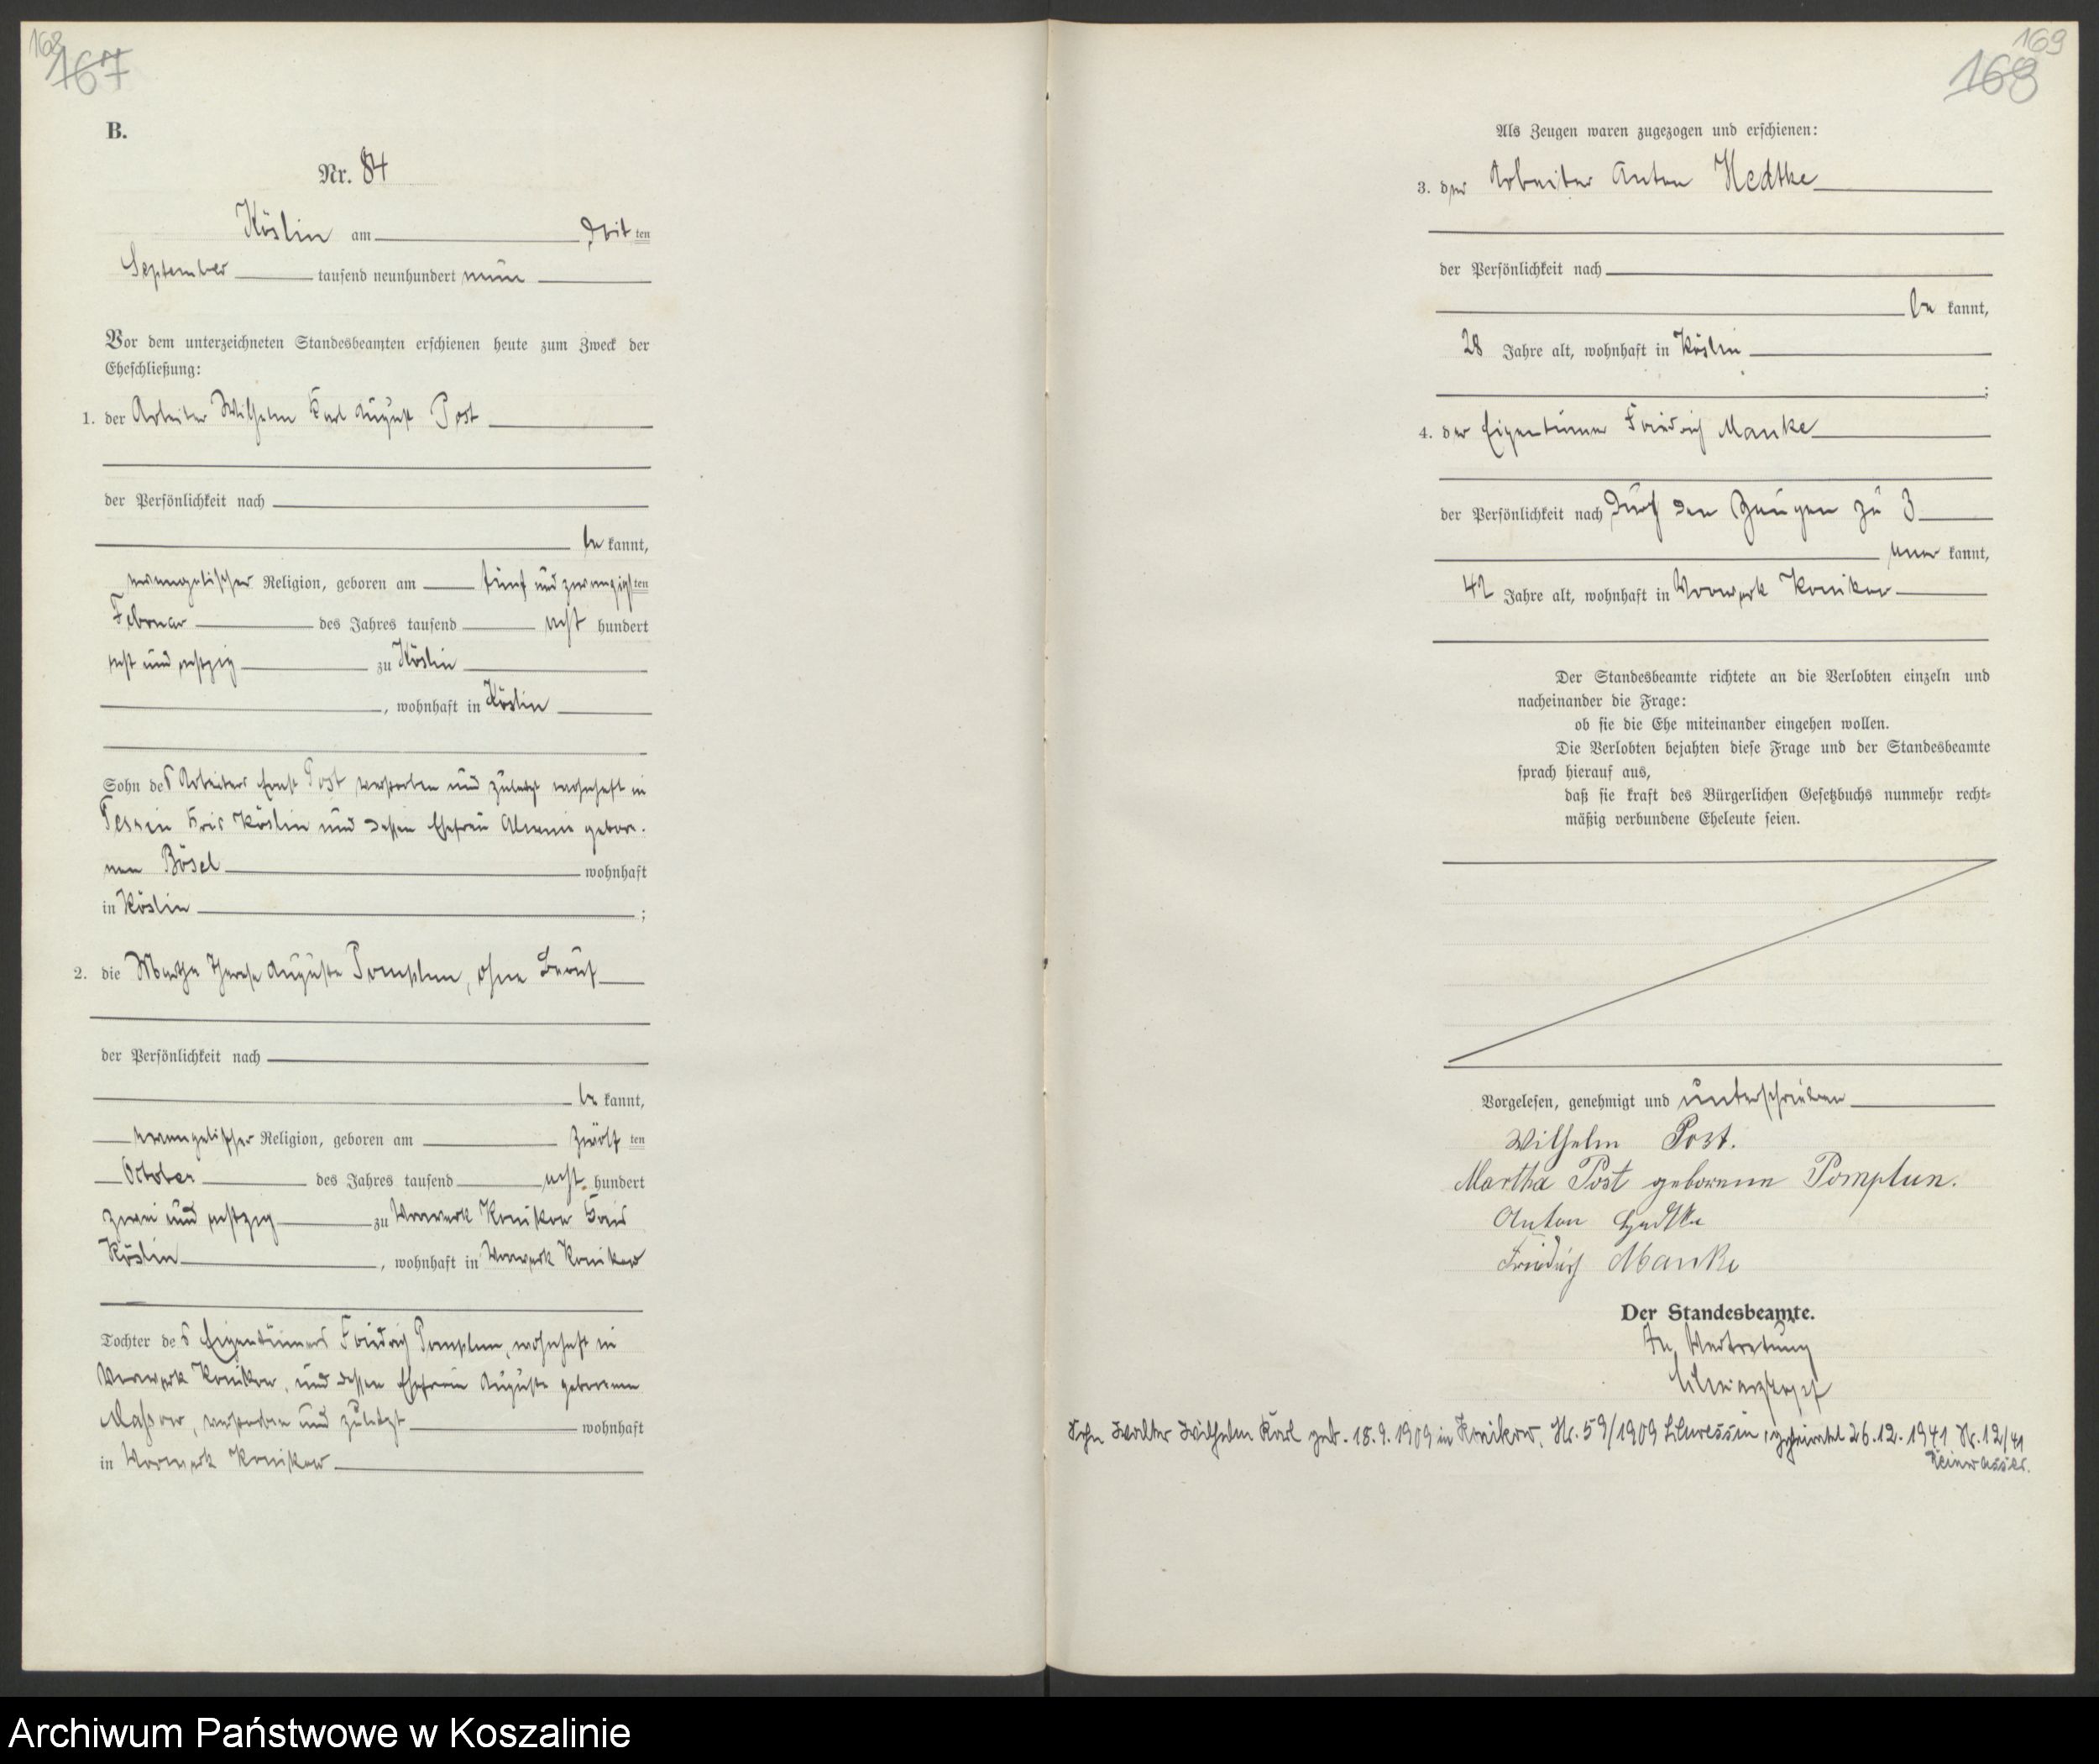 168
167
B.
Nr. 84
Köslin am dritten
September tausend neunhundert neun
Vor dem unterzeichneten Standesbeamten erschienen heute zum Zweck der
Eheschließung:
1. der Arbeiter Wilhelm Karl August Post
der Persönlichkeit nach
bekannt,
evangelischer Religion, geboren am fünf und zwanzigsten
Februar des Jahres tausend acht hundert
acht und achtzig zu Köslin
, wohnhaft in Köslin
Sohn des Arbeiters Ernst Post verstorben und zuletzt wohnhaft in
Tessin Kreis Köslin und dessen Ehefrau gebore-
nen Bösel wohnhaft
in Köslin ;
2. die Martha Therese Auguste Pomplun, ohne Beruf
der Persönlichkeit nach
bekannt,
evangelischer Religion, geboren am zwölften
October des Jahres tausend acht hundert
zwei und achtzig zu Vorwerk Konikow Kreis
Köslin , wohnhaft in Vorwerk Konikow
Tochter des Eigentümers Friedrich Pomplun, wohnhaft in
Vorwerk Konikow, und dessen Ehefrau Auguste geborenen
verstorben und zuletzt wohnhaft
in Vorwerk Konikow
169
168
Als Zeugen waren zugezogen und erschienen:
3. der Arbeiter Anton Hedtke
der Persönlichkeit nach
bekannt,
28 Jahre alt, wohnhaft in Köslin
;
4. der Eigentümer Friedrich Manke
der Persönlichkeit nach durch den Zeugen zu 3
anerkannt,
42 Jahre alt, wohnhaft in Vorwerk Konikow
Der Standesbeamte richtete an die Verlobten einzeln und
nacheinander die Frage:
ob sie die Ehe miteinander eingehen wollen.
Die Verlobten bejahten diese Frage und der Standesbeamte
sprach hierauf aus,
daß sie kraft des Bürgerlichen Gesetzbuchs nunmehr recht-
mäßig verbundene Eheleute seien.
Vorgelesen, genehmigt und unterschrieben
Wilhelm Post.
Martha Post geborenen Pomplun.
Anton Hedtke
Friedrich Manke
Der Standesbeamte.
In Vertretung
Sohn Walter Wilhelm Karl geb. 18.9.1909 in Konikow, Nr. 59/1909 , geheiratet 26.12.1941 Nr. 12/41
Reinwasser.
Archiwum Państwowe w Koszalinie